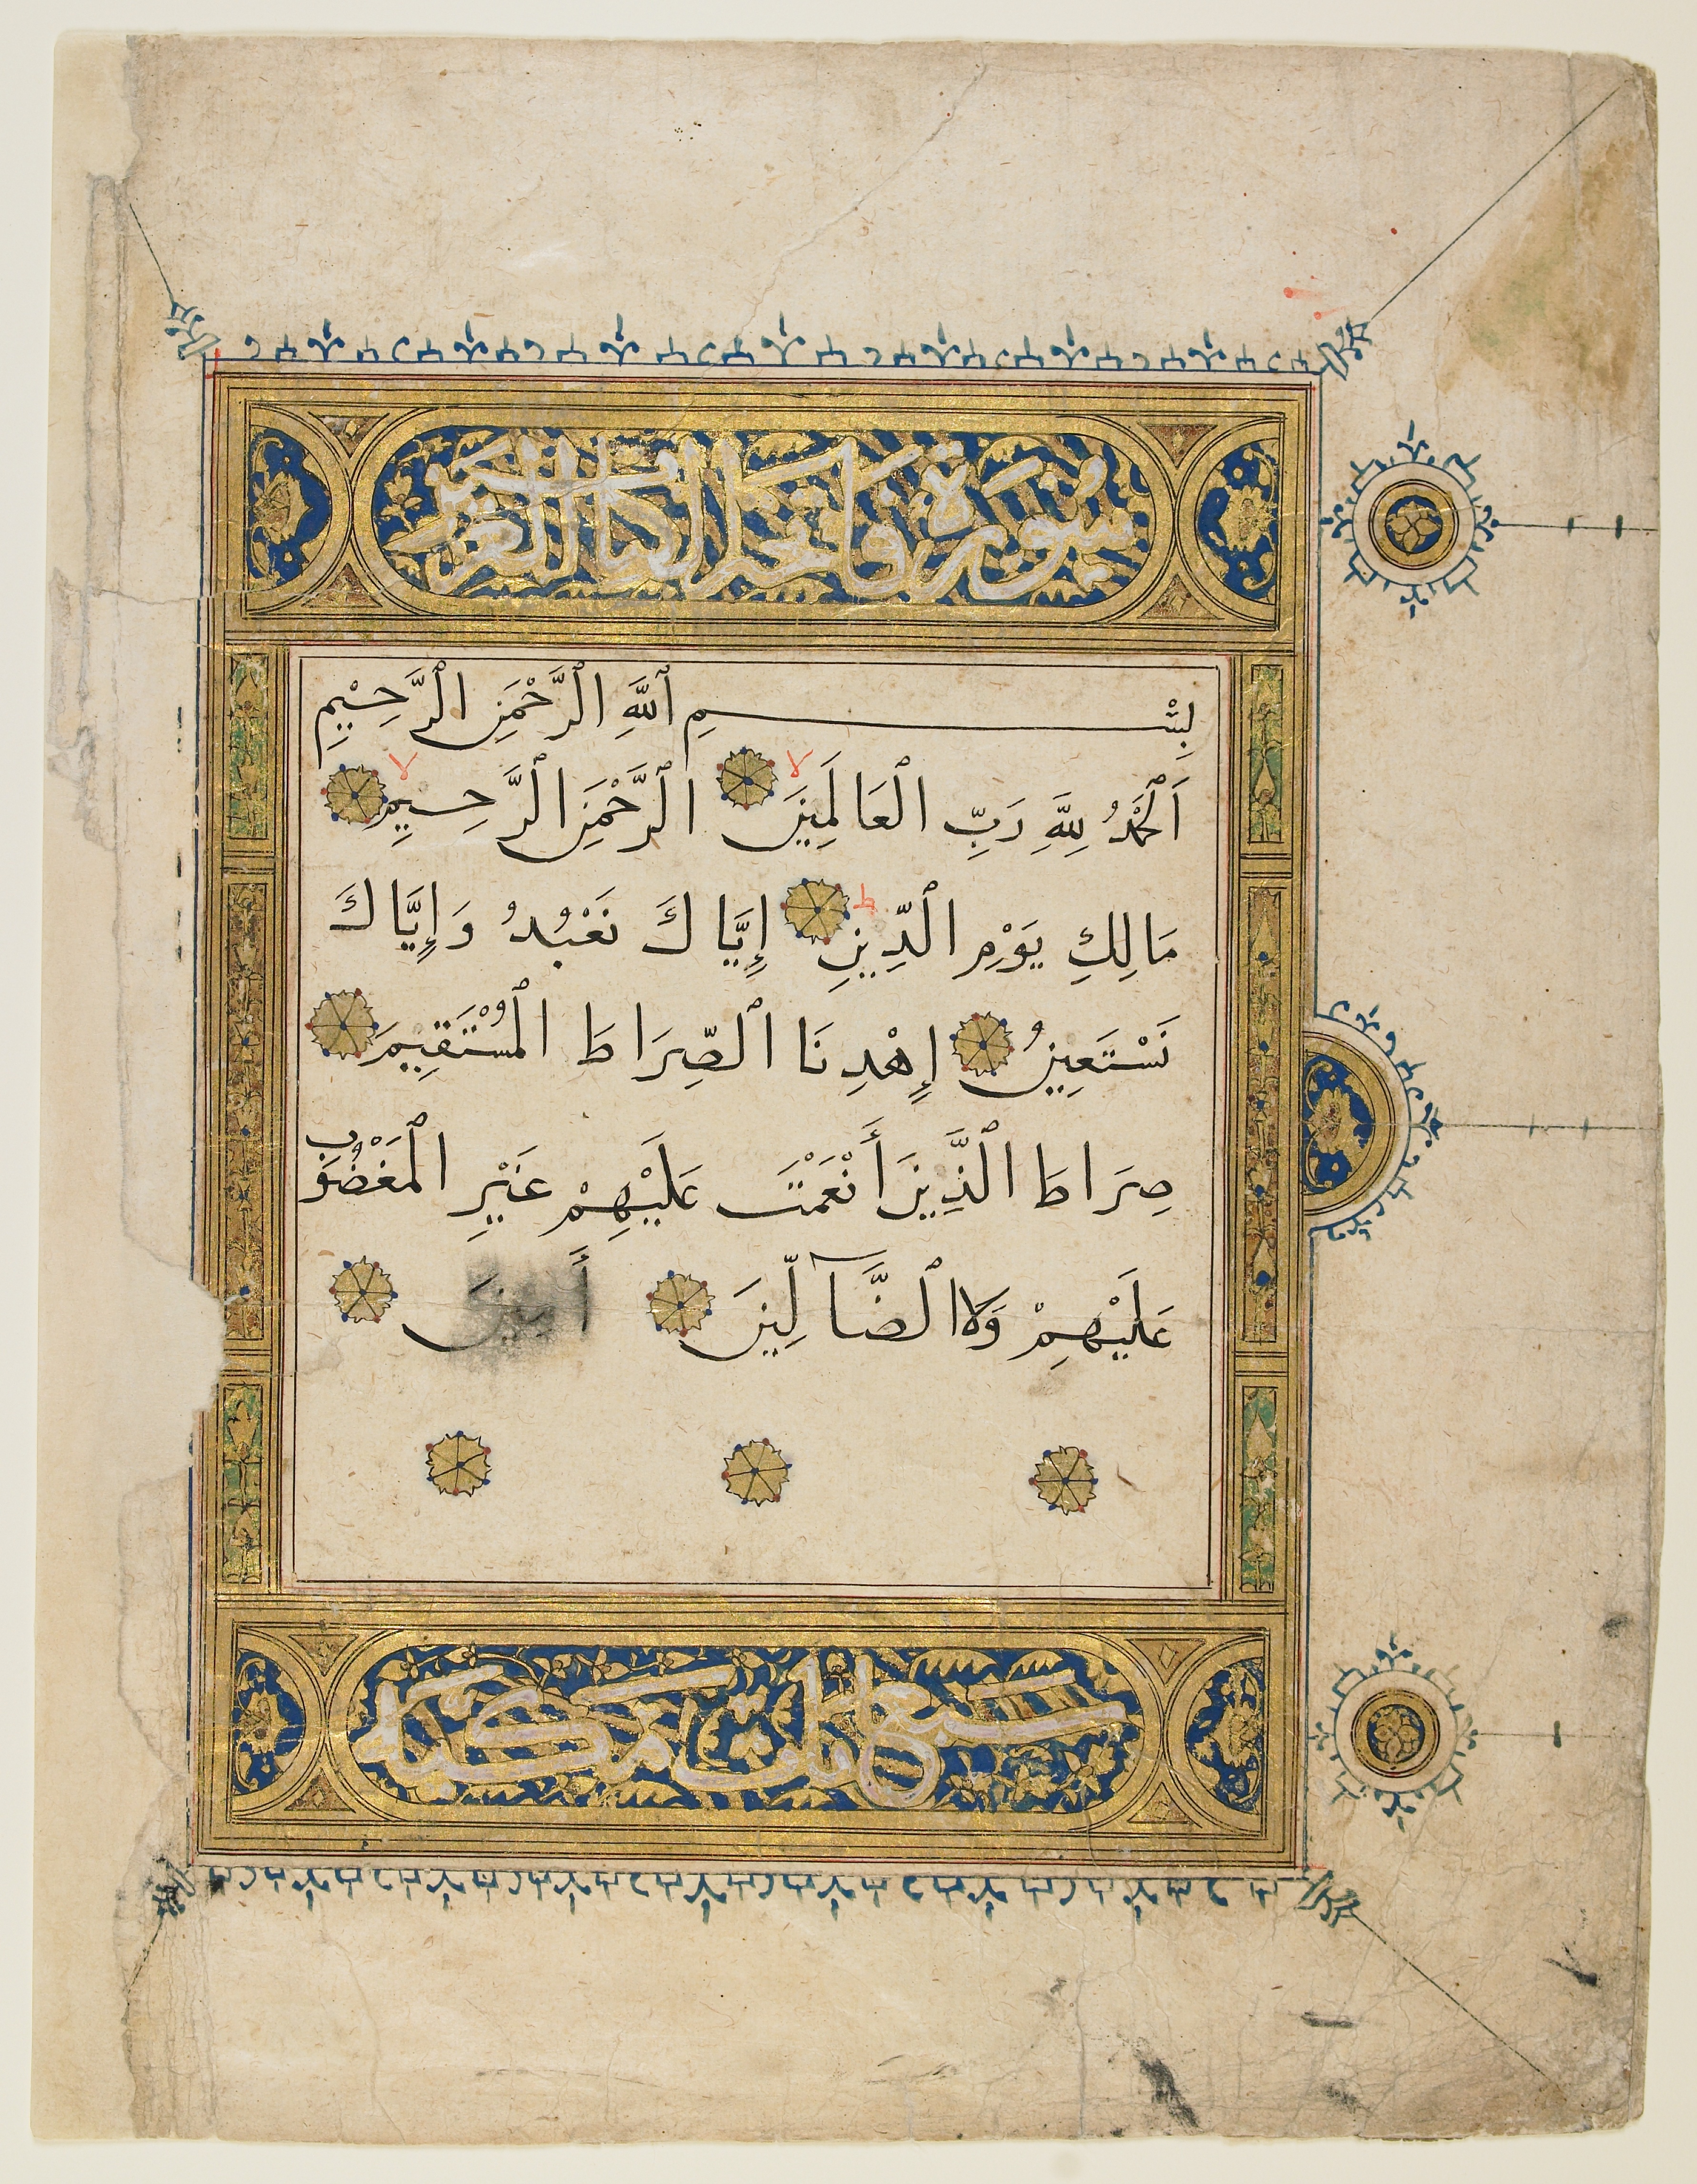 سورة فاتحة الكتاب العزيز
بِسْمِ ٱللَّهِ ٱلرَّحْمَنِ ٱلرَّحِيْمِ
اَلْحَمْدُ لِلَّهِ رَبِّ ٱلْعَالَمِيْنَ لا ٱلرَّحْمَنِ ٱلرَّحِيمِ لا
مَالِكِ يَوْمِ ٱلدِّينِ ط إِيَّاكَ نَعْبُدُ وَإِيَّاكَ
نَسْتَعِينُ إِهْدِنَا ٱلصِّرَاطَ ٱلْمُسْتَقِيمَ
صِرَاطَ ٱلَّذِينَ أَنْعَمْتَ عَلَيْهِمْ غَيْرِ ٱلْمَغْضُوبِ
عَلَيْهِمْ وَلَا ٱلضَّآلِّينَ أَمِينَ
سبع ايات مكية